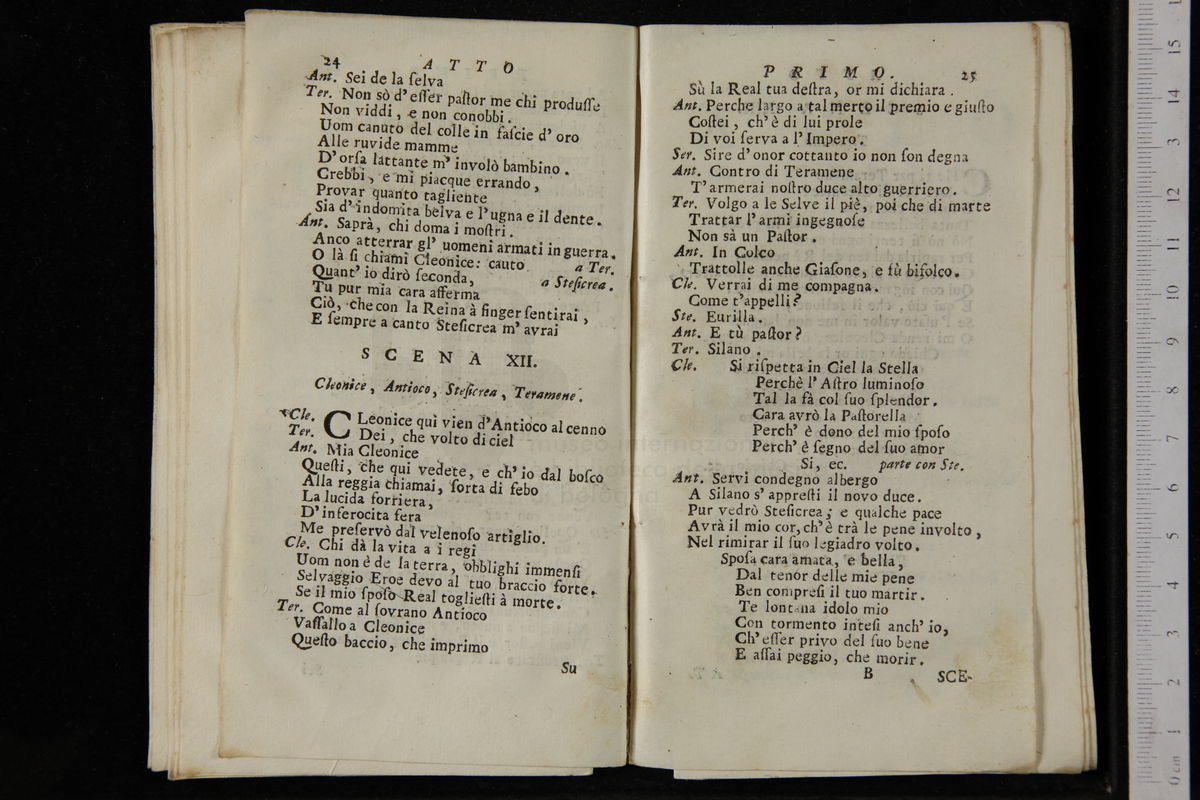 24 ATTO
Ant. Sei de la ſelva
Ter. Non sò d'eſſer paſtor me chi produſſe
Non viddi, e non conobbi.
Uom canuto del colle in faſcie d'oro
Alle ruvide mamme
D'orſa lattante m'involò bambino.
Crebbi, e mi piacque errando,
Provar quanto tagliente
Sia d'indomita belva e l'ugna e il dente.
Ant. Saprà, chi doma i moſtri.
Anco atterrar gl' uomeni armati in guerra.
O là ſi chiami Cleonice: cauto a Ter.
Quant' io dirò ſeconda, a Steſicrea.
Tu pur mia cara afferma
Ciò, che con la Reina à finger ſentirai,
E ſempre a canto Steſicrea m'avrai
SCENA XII.
Cleonice, Antioco, Steſicrea, Teramene.
Cle. CLeonice quì vien d'Antioco al cenno
Ter. Dei, che volto di ciel
Ant. Mia Cleonice
Queſti, che qui vedete, e ch'io dal boſco
Alla reggia chiamai, ſorta di febo
La lucida forriera,
D'inferocita fera
Me preſervò dal velenoſo artiglio.
Cle. Chi dà la vita a i regi
Uom non è de la terra, obblighi immenſi
Selvaggio Eroe devo al tuo braccio forte.
Se il mio ſpoſo Real toglieſti à morte.
Ter. Come al ſovrano Antioco
Vaſſallo a Cleonice
Queſto baccio, che imprimo
Su
PRIMO. 25
Sù la Real tua deſtra, or mi dichiara.
Ant. Perche largo a tal merto il premio e giuſto
Coſtei, ch'è di lui prole
Di voi ſerva a l'Impero.
Ser. Sire d'onor cottanto io non ſon degna
Ant. Contro di Teramene
T'armerai noſtro duce alto guerriero.
Ter. Volgo a le Selve il piè, poi che di marte
Trattar l'armi ingegnoſe
Non sà un Paſtor.
Ant. In Colco
Trattolle anche Giaſone, e fù biſolco.
Cle. Verrai di me compagna.
Come t'appelli?
Ste. Eurilla.
Ant. E tù paſtor?
Ter. Silano.
Cle. Si riſpetta in Ciel la Stella
Perchè l'Aſtro luminoſo
Tal la fà col ſuo ſplendor.
Cara avrò la Paſtorella
Perch' è dono del mio ſpoſo
Perch' è ſegno del ſuo amor
Si, ec. parte con Ste.
Ant. Servi condegno albergo
A Silano s'appreſti il novo duce.
Pur vedrò Steſicrea; e qualche pace
Avrà il mio cor, ch'è trà le pene involto,
Nel rimirar il ſuo legiadro volto.
Spoſa cara amata, e bella,
Dal tenor delle mie pene
Ben compreſi il tuo martir.
Te lontana idolo mio
Con tormento inteſi anch' io,
Ch'eſſer privo del ſuo bene
E aſſai peggio, che morir.
B SCE-